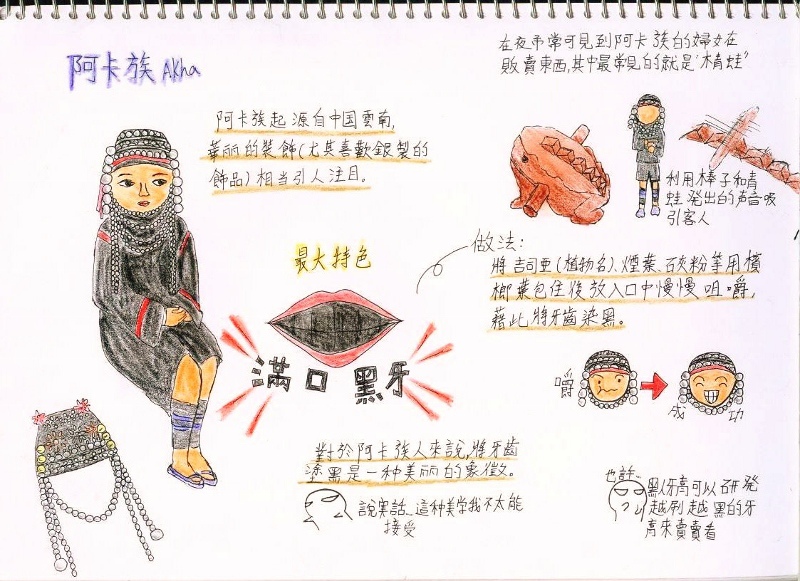 阿卡族 Akha
阿卡族起源自中国雲南,
華丽的裝飾(尤其喜歡銀製的
飾品)相当引人注目。
在夜市常可見到阿卡族的婦女在
販賣東西,其中最常見的就是"木青蛙"
利用棒子和青
蛙発出的声音吸
引客人
最大特色
滿口黑牙
做法:
將吉司亜(植物名)、煙葉、石灰粉等用檳
榔葉包住後放入口中慢慢咀嚼,
藉此將牙齒染黑。
嚼
成功
對於阿卡族人來說,將牙齒
塗黑是一种美丽的象徵。
說実話…這種美学我不太能
接受
也許…
黑人牙膏可以研発
越刷越黑的牙
膏來賣賣看